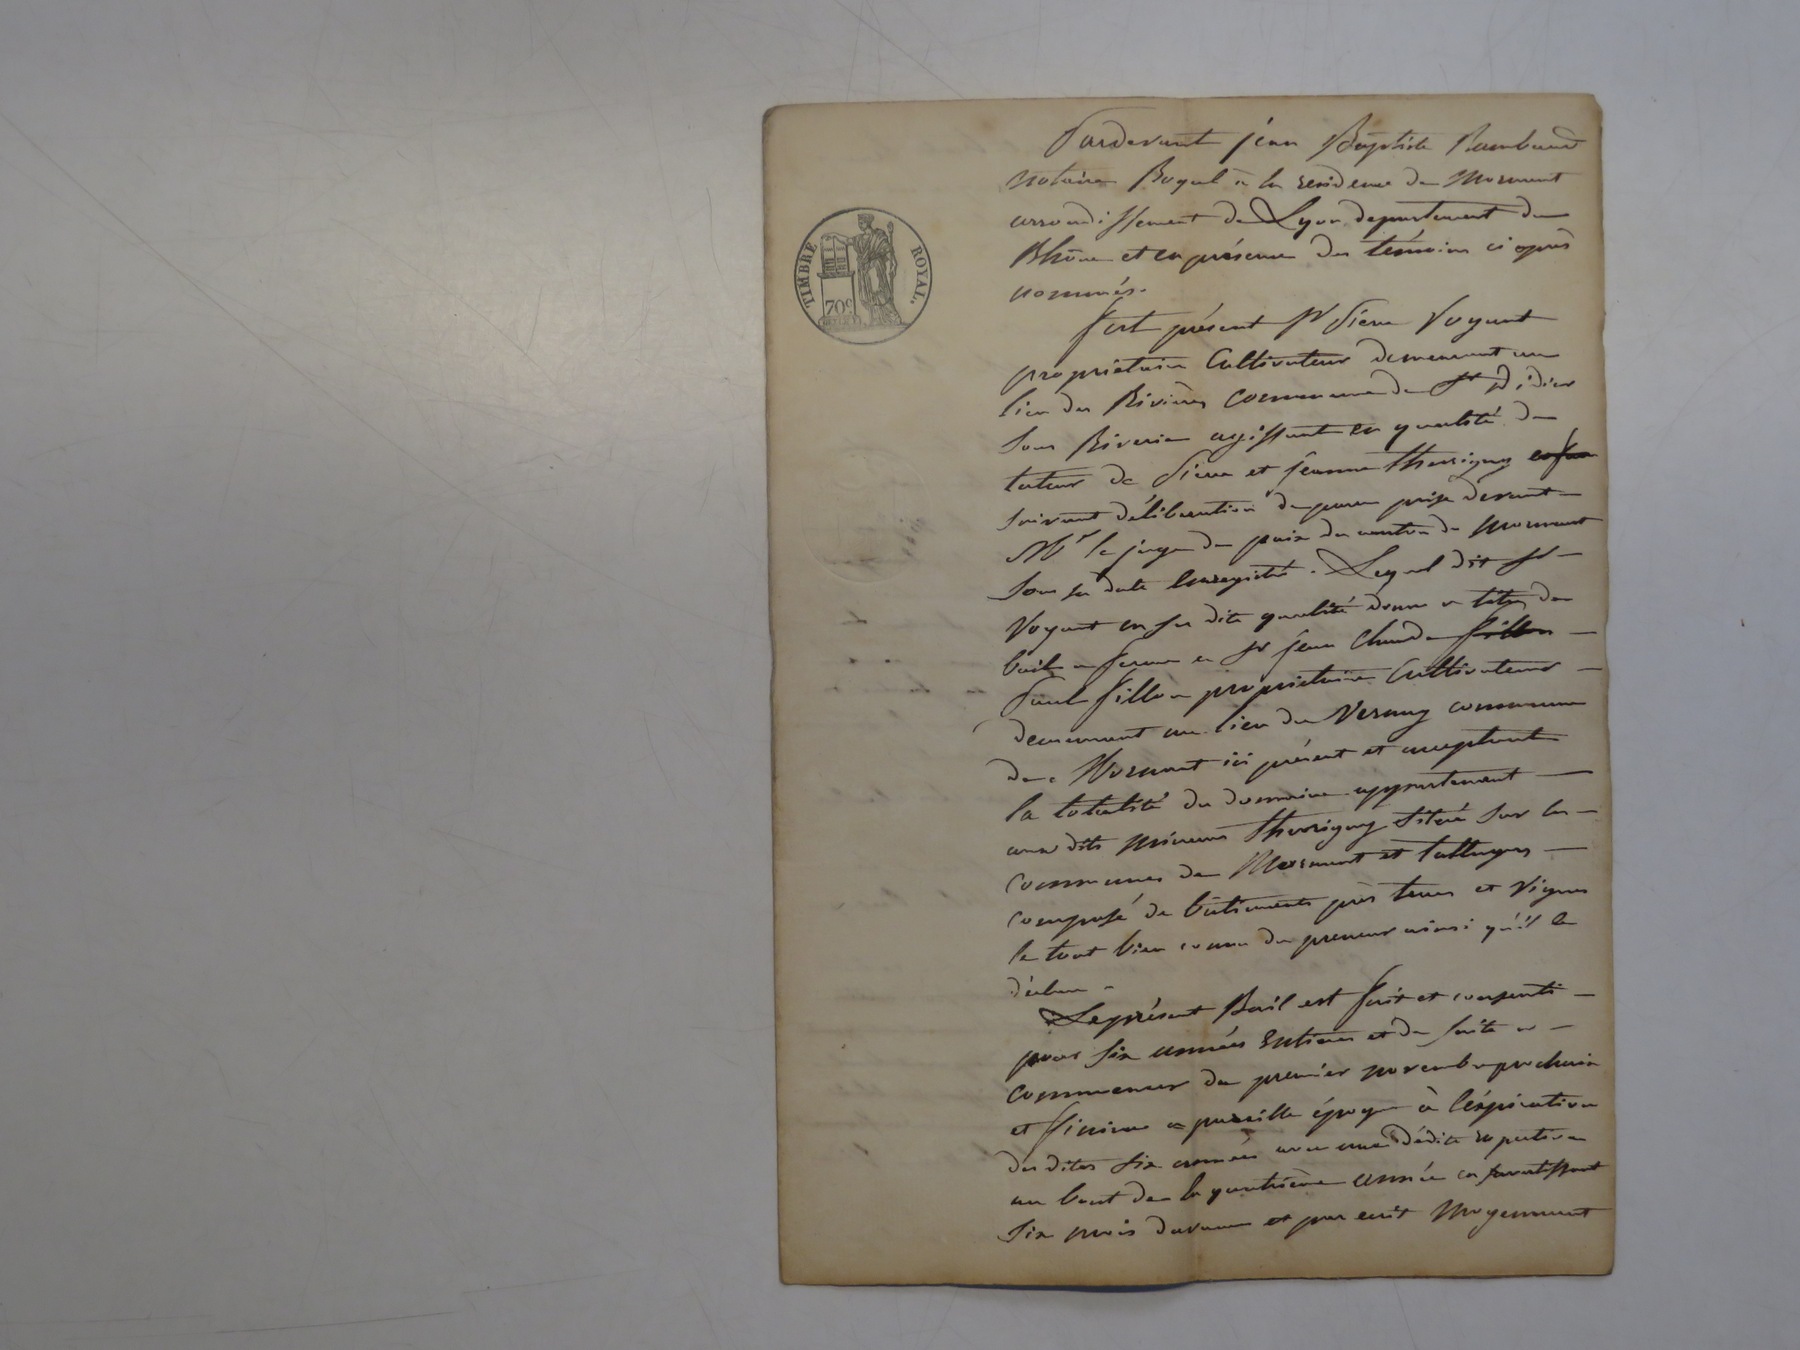 TIMBRE ROYAL.
70c
Pardevant jean Baptiste Rambaud
notaire Royal à la residence de Mornant
arrondissement de Lyon departement du
Rhône et en présence des témoins ci après
nommés.
fut présent Sr Pierre Voyant
propriétaire Cultivateur demeurant au
lieu des Rivières commune de St Didier
sous Riverie agissant en qualité de
tuteur de Pierre et jeanne Thevigny
suivant délibération de prise devant
Mr le juge de paix du canton de Mornant
sous sa date Enregistré. Lequel dit Sr
Voyant en sa dite qualité donne a titre de
bail a ferme a Sr jean Claude fillon
Paul fillon propriétaire Cultivateur
demeurant au lieu du Verany commune
de Mornant ici présent et acceptant
la totalité du domaine appartenant
aux dits Mineurs Thevigny Situé sur les
communes de Mornant et talluyers
composé de bâtiments près terres et Vignes
le tout bien connu du preneur ainsi qu'il le
déclare
Le présent Bail est fait et consenti
pour six années Entières et de suite a
commencer du premier novembre prochain
et finirons a pareille époque à l'éxpiration
des dites six années avec une dédite respective
au bout de la quatrième année en s'avertissant
six mois davance et par ecrit Moyennant